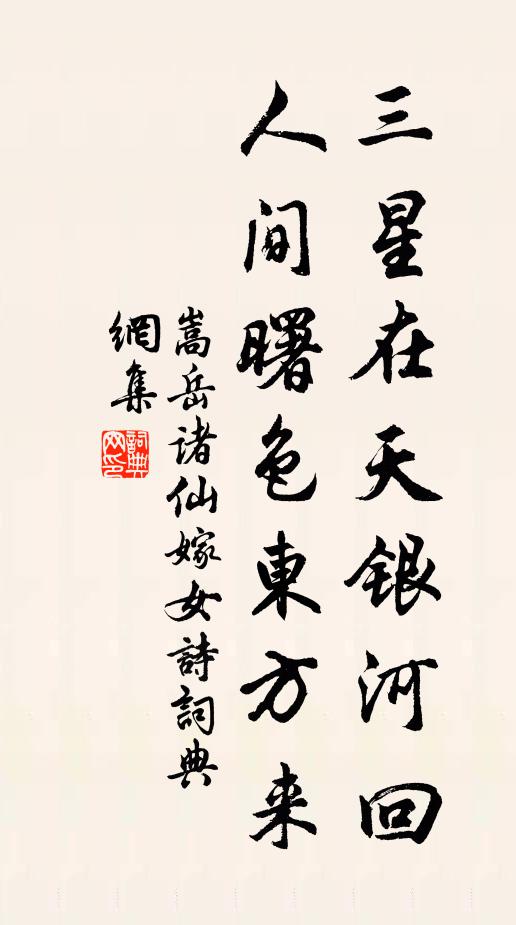 三星在天銀河回
人间曙色東方来
嵩岳诸仙嫁女詩詞典
網集
詞典网印